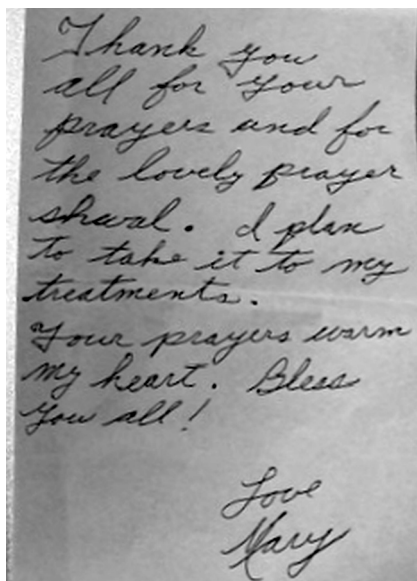 Thank you
all for your
prayers and for
the lovely prayer
shwal. I plan
to take it to my
treatments.
Your prayers warm
my heart. Bless
you all!
Love
Mary